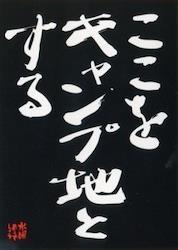 ここを
キャンプ地と
する